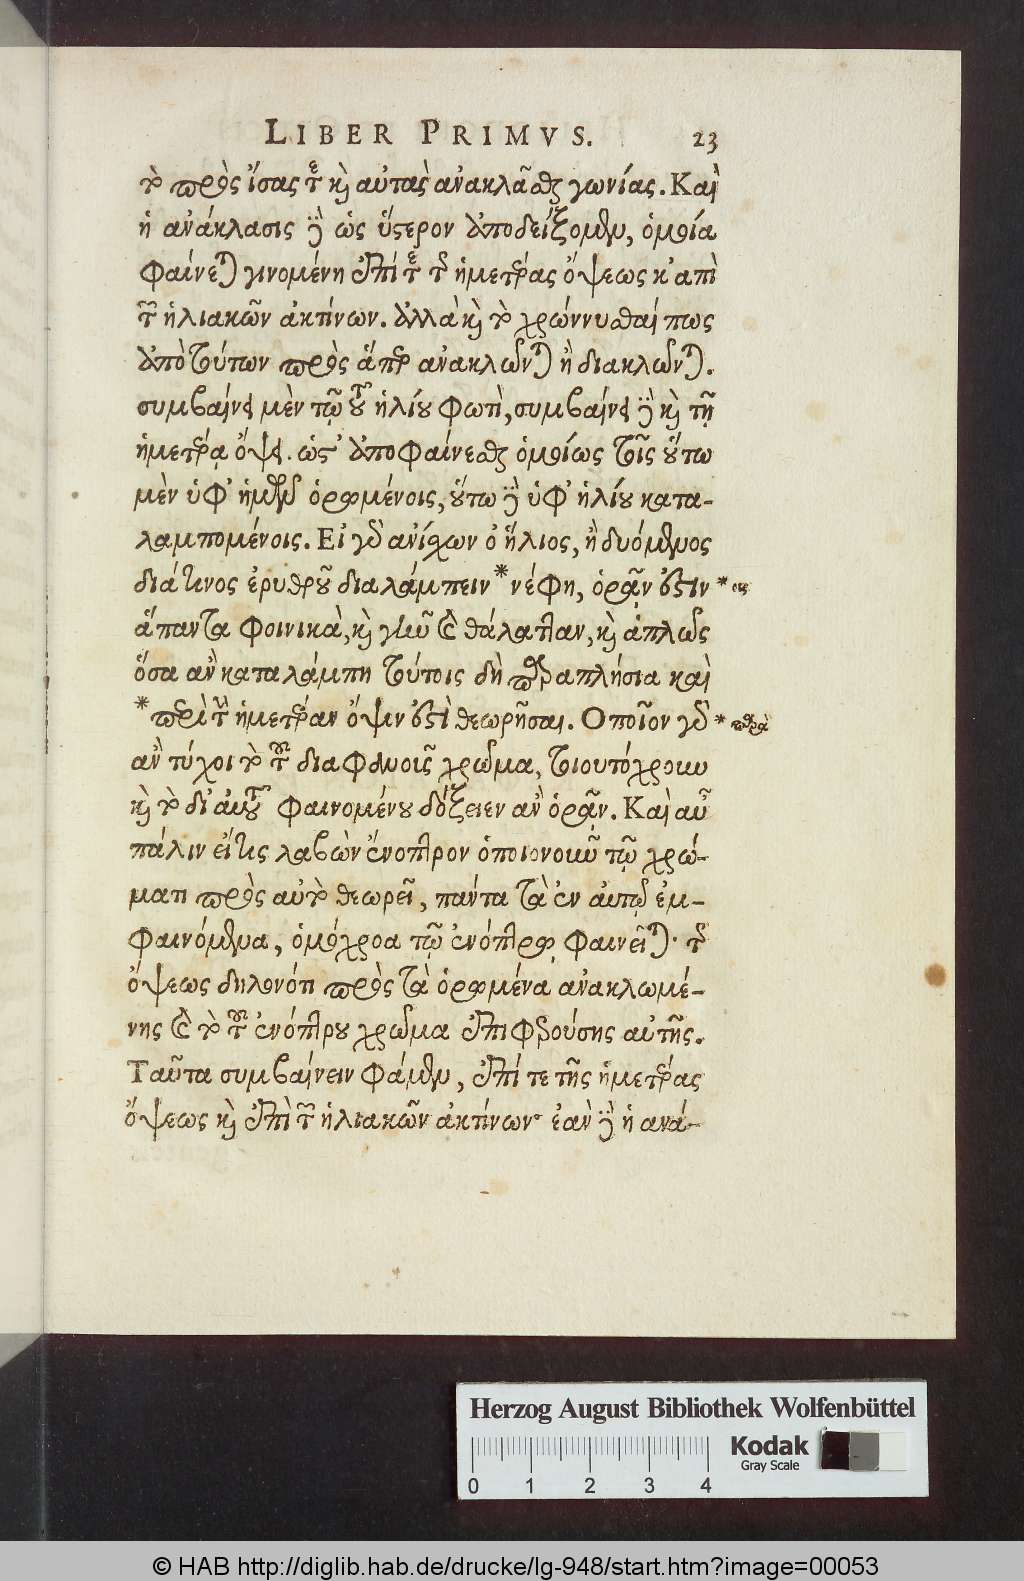 LIBER PRIMVS. 23
τὸ πρὸς ἴσας τε καὶ αὐτὰς ἀνακλᾶσθαι γωνίας. Καὶ
ἡ ἀνάκλασις δὲ ὡς ὕστερον ἀποδείξομεν, ὁμοία
φαίνεται γινομένη ἐπί τε τῆς ἡμετέρας ὄψεως κἀπὶ
τῶν ἡλιακῶν ἀκτίνων. ἀλλὰ καὶ τὸ χρώννυσθαί πως
ἀπὸ τούτων πρὸς ἅπερ ἀνακλῶνται ἢ διακλῶνται.
συμβαίνει μὲν τῷ τοῦ ἡλίου φωτὶ, συμβαίνει δὲ καὶ τῇ
ἡμετέρᾳ ὄψει. ὥστ' ἀποφαίνεσθαι ὁμοίως τοῖς οὕτω
μὲν ὑφ' ἡμῶν ὁρωμένοις, οὕτω δὲ ὑφ' ἡλίου κατα-
λαμπομένοις. Εἰ γὰρ ἀνίσχων ὁ ἥλιος, ἢ δυόμενος
διά τινος ἐρυθροῦ διαλάμπειν * νέφη, ὁρᾷν ἔστιν *
ἅπαντα φοινικὰ, καὶ γῆν καὶ θάλατταν, καὶ ἁπλῶς
ὅσα ἂν καταλάμπη τούτοις δὴ παραπλήσια καὶ
* περὶ τὴν ἡμετέραν ὄψιν ἔστι θεωρῆσαι. Οποῖον γὰρ * παρὰ
ἂν τύχοι τὸ τῶν διαφανοῖς χρῶμα, τοιουτόχροιν
καὶ τὸ δι' αὐτοῦ φαινομένου δόξειεν ἂν ὁρᾷν. Καὶ αὖ
πάλιν εἴ τις λαβὼν ἔνοπτρον ὁποιονοιῦν τῷ χρώ-
ματι πρὸς αὐτὸ θεωρεῖ, πάντα τὰ ἐν αὐτῷ ἐμ-
φαινόμενα, ὁμόχροα τῷ ἐνόπτρῳ φαινεῖται· τῆς
ὄψεως δηλονότι πρὸς τὰ ὁρώμενα ἀνακλωμέ-
νης καὶ τὸ τοῦ ἐνόπτρου χρῶμα ἐπιφερούσης αὐτῆς.
Ταῦτα συμβαίνειν φάμεν, ἐπί τε τῆς ἡμετέρας
ὄψεως καὶ ἐπὶ τῶν ἡλιακῶν ἀκτίνων· ἐὰν δὲ ἡ ἀνά-
Herzog August Bibliothek Wolfenbüttel
Kodak
Gray Scale
0 1 2 3 4
© HAB http://diglib.hab.de/drucke/lg-948/start.htm?image=00053